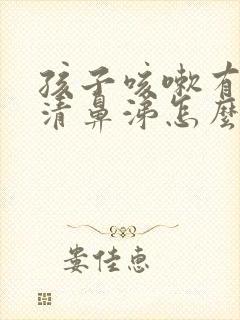 孩子咳嗽有
清鼻涕怎麽
娄佳惠